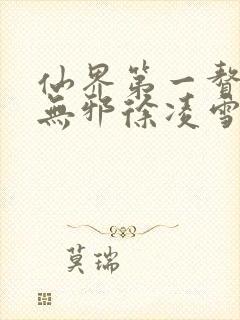 仙界第一贅
無邪徐凌雪
莫瑞